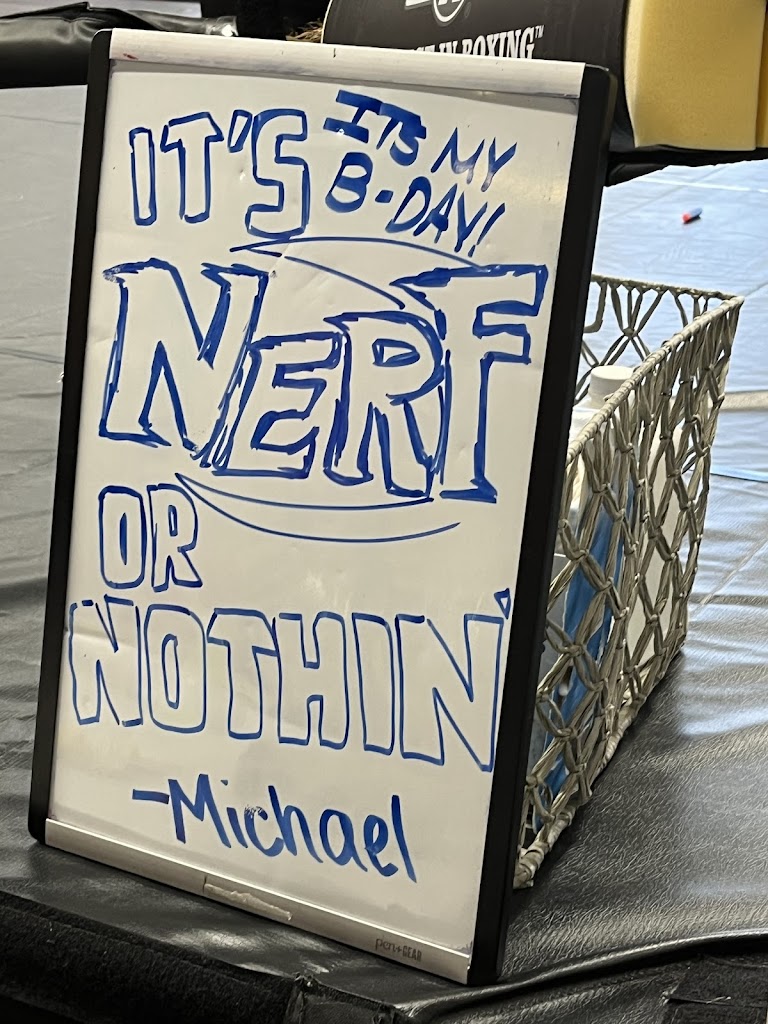 IN BOXING™
IT'S
ITS MY
B-DAY!
NERF
OR
NOTHIN'
-Michael
pen+GEAR